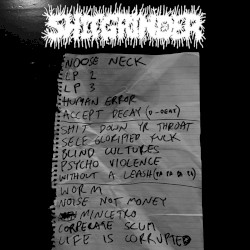 SHITGRINDER
NOOSE NECK
LP 2
LP 3
HUMAN ERROR
ACCEPT DECAY (D-BEAT)
SHIT DOWN YR THROAT
SELF GLORIFIED FUCK
BLIND CULTURES
PSYCHO VIOLENCE
WITHOUT A LEASH (TA TA TA TA)
WORM
NOISE NOT MONEY
MINCETRO
CORPORATE SCUM
LIFE IS CORRUPTED